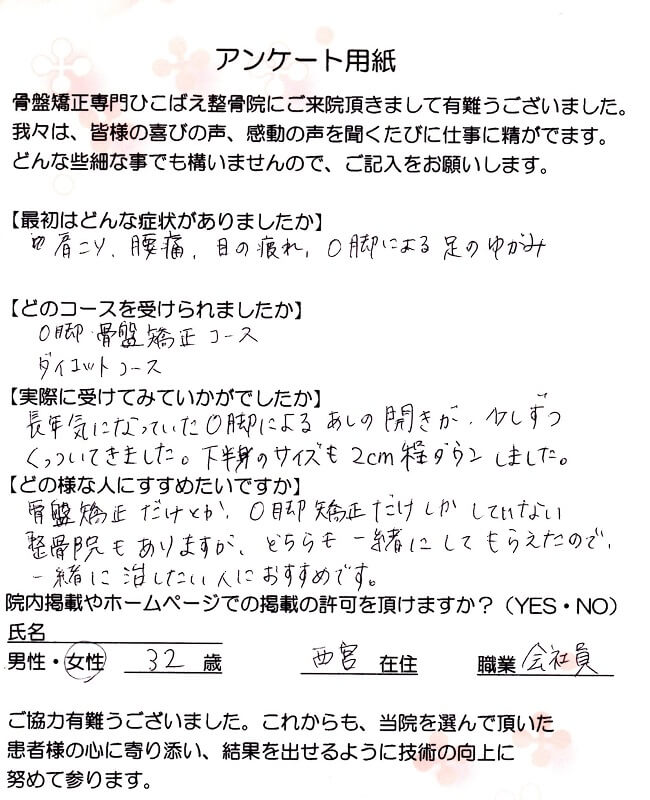 アンケート用紙
骨盤矯正専門ひこばえ整骨院にご来院頂きまして有難うございました。
我々は、皆様の喜びの声、感動の声を聞くたびに仕事に精がでます。
どんな些細な事でも構いませんので、ご記入をお願いします。
【最初はどんな症状がありましたか】
肩こり、腰痛、目の疲れ、O脚による足のゆがみ
【どのコースを受けられましたか】
O脚・骨盤矯正コース
ダイエットコース
【実際に受けてみていかがでしたか】
長年気になっていたO脚によるあしの開きが、少しずつ
くっついてきました。下半身のサイズも2cm程ダウンしました。
【どの様な人にすすめたいですか】
骨盤矯正だけとか、O脚矯正だけしかしていない
整骨院もありますが、どちらも一緒にしてもらえたので、
一緒に治したい人におすすめです。
院内掲載やホームページでの掲載の許可を頂けますか？（YES・NO）
氏名
男性・女性 32 歳 西宮 在住 職業 会社員
ご協力有難うございました。これからも、当院を選んで頂いた
患者様の心に寄り添い、結果を出せるように技術の向上に
努めて参ります。